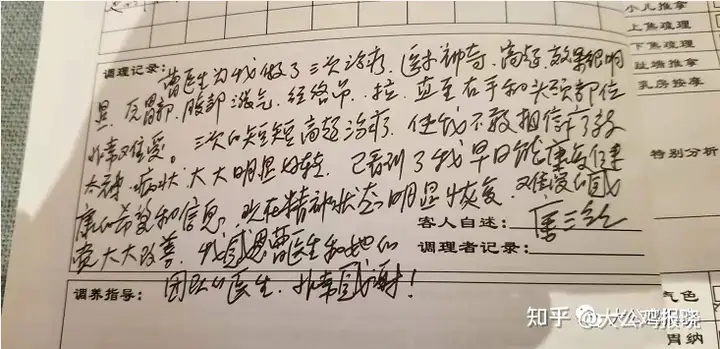 小儿推拿
上焦疏理
下焦疏理
趾端推拿
乳房按摩
特别分析
气色
胃纳
调理记录:
曹医生为我做了三次治疗.医术神奇.高超.效果很明
显.反胃部.腹部涨气.经络吊.拉.直至右手和头颈部位
非常难受。三次的短短高超治疗.使我不敢相信有了较
病状大大明显好转.已看到了我早日能康复健
康的希望和信息,现在精神状态明显恢复.难受的感
觉大大改善.我感恩曹医生和她的
客人自述:
调理者记录:
调养指导:
团队的医生.非常感谢!
知乎 @大公鸡报晓